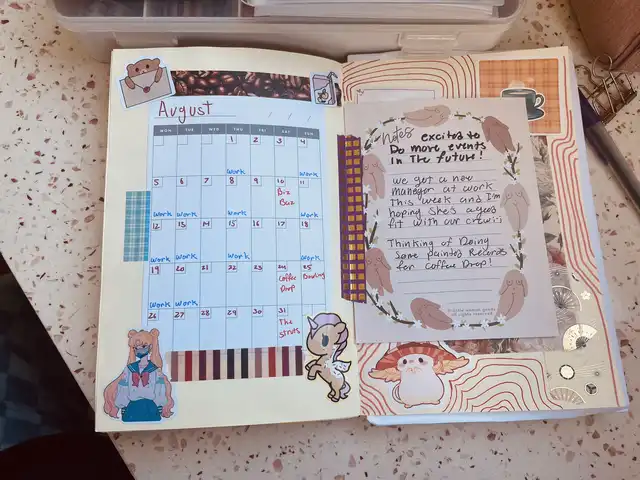 August
MON TUE WED THU FRI SAT SUN
1 2 3 4
Work Work
5 6 7 8 9 10 11
Biz
Baz
Work Work Work Work
12 13 14 15 16 17 18
Work Work
19 20 21 22 23 24 25
Coffee Bowling
Drop
Work Work
26 27 28 29 30 31
The
Struts
Notes excited to
Do more events
In The future!
we got a new
manager at work
This week and I'm
hoping she's a good
fit with our crew :)
Thinking of Doing
some painted Records
for Coffee Drop!
all rights reserved